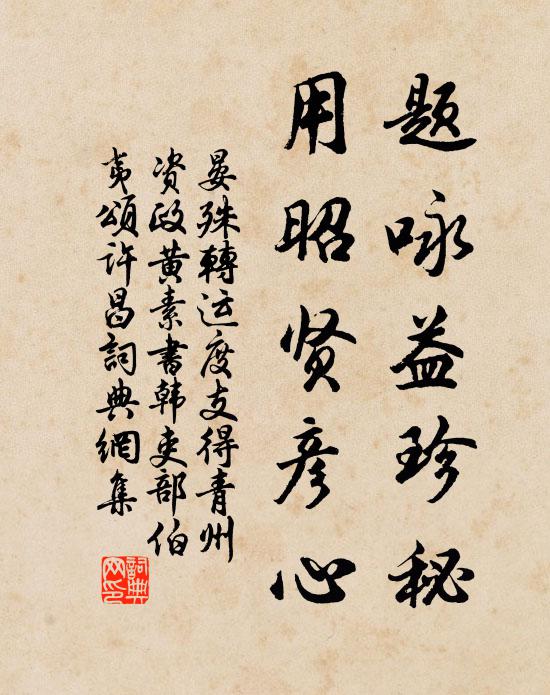 题咏益珍秘
用昭贤彦心
晏殊轉运度支得青州
资政黄素書韩吏部伯
夷頌许昌詞典網集
詞典网印